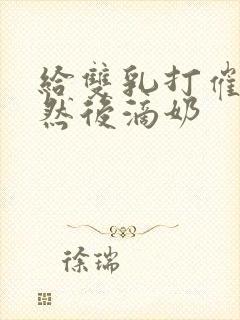 給雙乳打催
然後滴奶
徐瑞